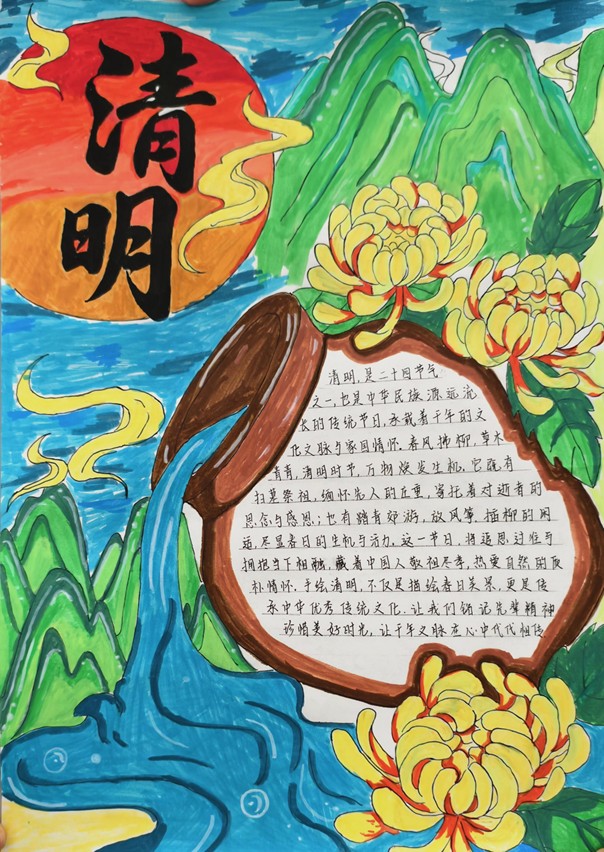 清明
清明,是二十四节气
之一,也是中华民族源远流
长的传统节日,承载着千年的文
化文脉与家国情怀。春风拂柳,草木
青青,清明时节,万物焕发生机,它既有
扫墓祭祖,缅怀先人的庄重,寄托着对逝者的
思念与感恩;也有踏青郊游,放风筝,插柳的闲
适,尽显春日的生机与活力。这一节日,将追思过往与
拥抱当下相融,藏着中国人敬祖尽孝,热爱自然的质
朴情怀。手绘清明,不仅是描绘春日美景,更是传
承中华优秀传统文化,让我们铭记先辈精神
珍惜美好时光,让千年文脉在心中代代相传